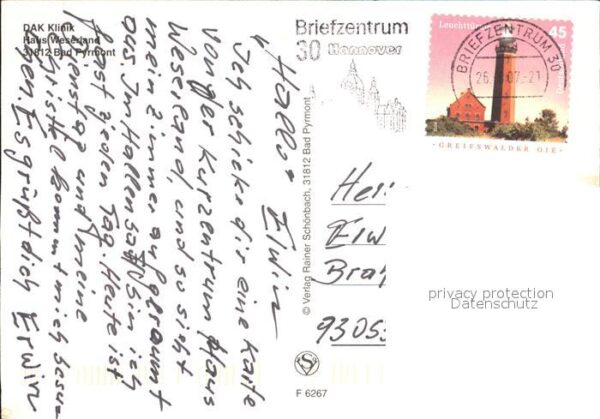 DAK Klinik
Haus Weserland
31812 Bad Pyrmont
Hallo Elwin
Ich schicke dir eine Karte
von der Kurzentrum Haus
Weserland und so sieht
mein Zimmer aufgeräumt
aus. Im Hallenbad bin ich
fast jeden Tag. Heute ist
Dienstag und meine
kommt mich besu-
chen. Es grüßt dich Erwin
© Verlag Rainer Schönbach, 31812 Bad Pyrmont
Briefzentrum
30 Hannover
Leuchttür
45
BRIEFZENTRUM 30
07.-21
GREIFSWALDER OIE
Her
Elw
93053
privacy protection
Datenschutz
F 6267